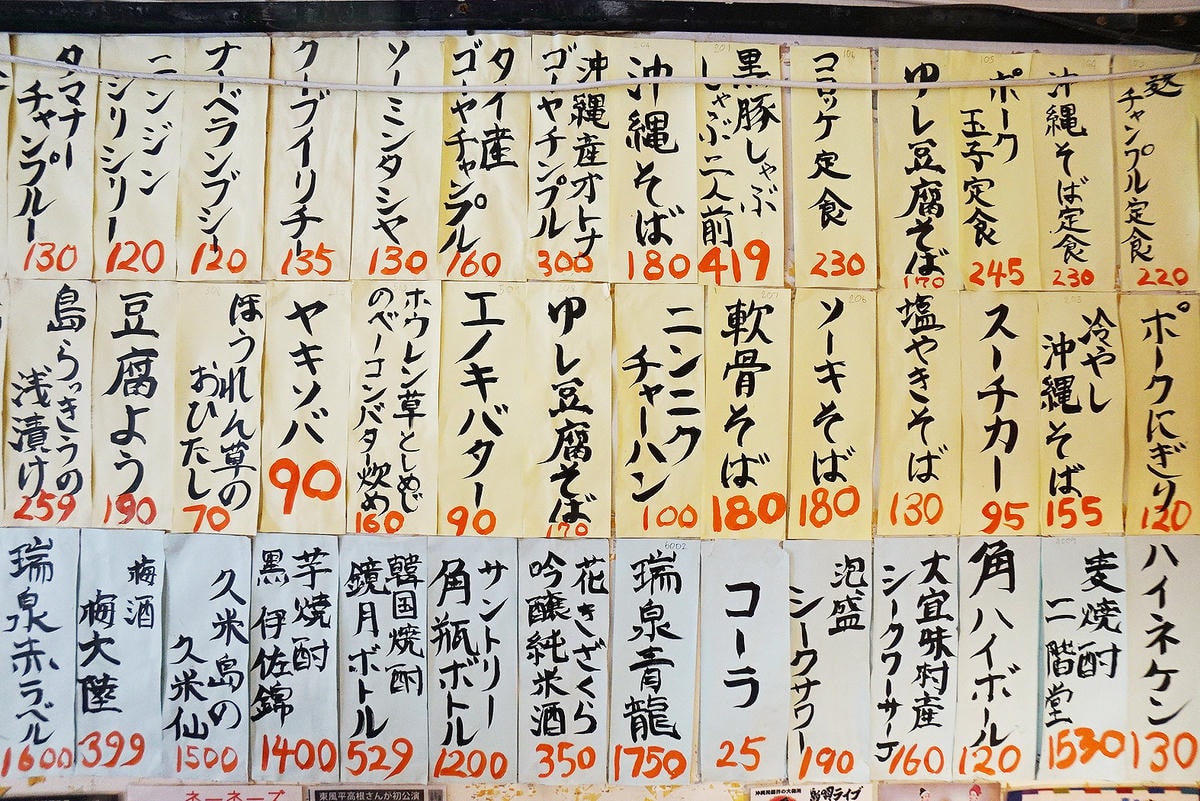 麩
チャンプル定食
220
沖縄そば定食
230
ポーク
玉子定食
245
ゆし豆腐そば
170
コロッケ定食
230
黒豚しゃぶ
しゃぶ二人前
419
沖縄そば
180
沖縄産オトナ
ゴーヤチンプル
300
タイ産
ゴーヤチャンプル
160
ソーミンタシヤ
130
クーブイリチー
135
ナーベランブシー
120
ニンジン
シリシリー
120
タマナー
チャンプルー
130
ポークにぎり
120
冷やし
沖縄そば
155
スーチカー
95
塩やきそば
130
ソーキそば
180
軟骨そば
180
ニンニク
チャーハン
100
ゆし豆腐そば
170
エノキバター
90
ホウレン草としめじ
のベーコンバター炒め
160
ヤキソバ
90
ほうれん草の
おひたし
70
豆腐よう
190
島らっきうの
浅漬け
259
ハイネケン
130
麦焼酎
二階堂
1530
角ハイボール
120
大宜味村産
シークワーサーJ
160
泡盛
シークサワー
190
コーラ
25
瑞泉青龍
1750
花きざくら
吟醸純米酒
350
サントリー
角瓶ボトル
1200
韓国焼酎
鏡月ボトル
529
芋焼酎
黒伊佐錦
1400
久米島の
久米仙
1500
梅酒
梅大陸
399
瑞泉赤ラベル
1600
ネーネーブ
東風平高根さんが初公演